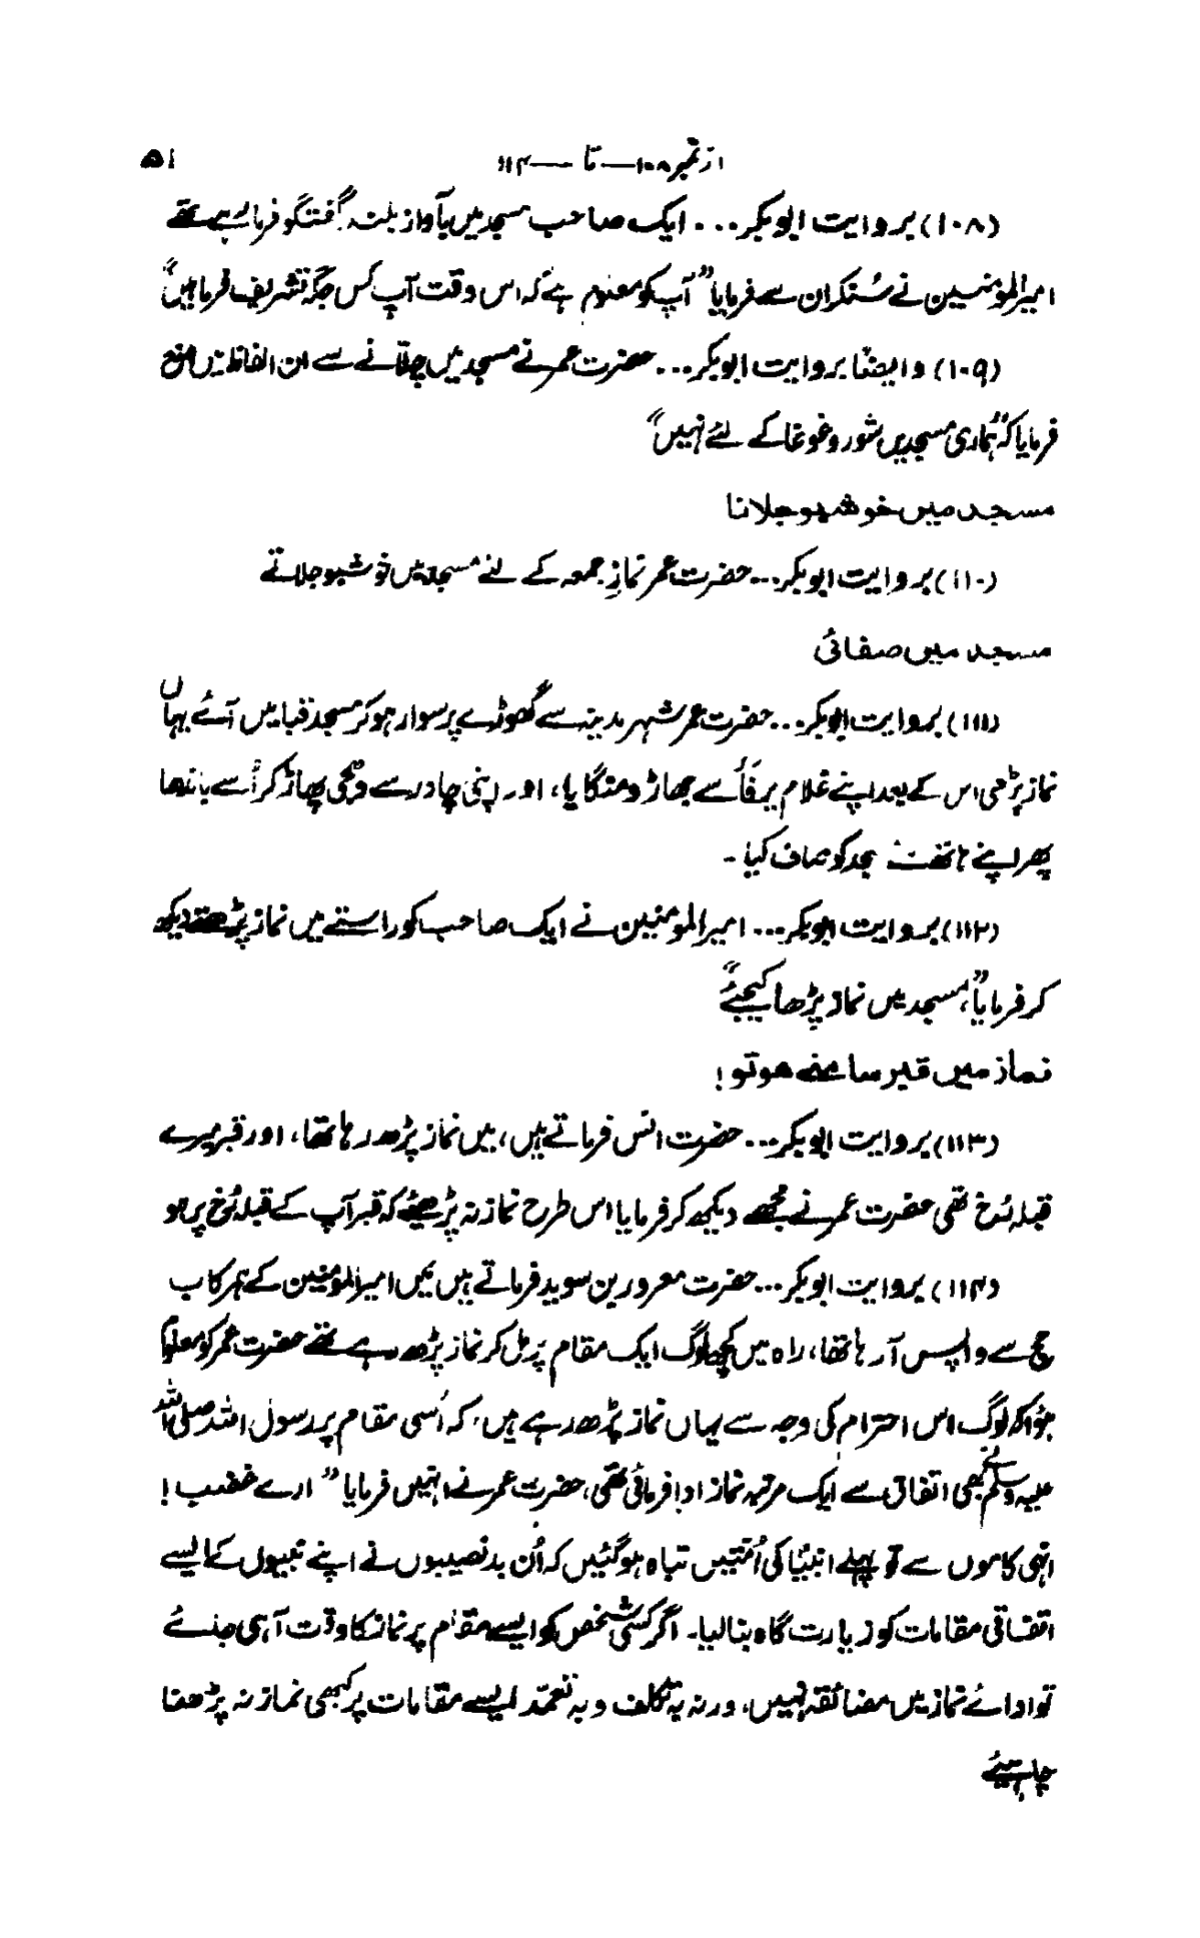 از نمبر ۱۰۸ — تا — ۱۱۴
۵۱
(۱۰۸) بروایت ابوبکر ... ایک صاحب مسجد میں بآواز بلند گفتگو فرما رہے تھے
امیرالمؤمنین نے سُنکر ان سے فرمایا "آپ کو معلوم ہے کہ اس وقت آپ کس جگہ تشریف فرما ہیں"
(۱۰۹) وایضًا بروایت ابوبکر ... حضرت عمر نے مسجد میں چلّانے سے ان الفاظ میں منع
فرمایا کہ "ہماری مسجدیں شور و غوغا کے لئے نہیں"
مسجد میں خوشبو جلانا
(۱۱۰) بروایت ابوبکر ... حضرت عمر نمازِ جمعہ کے لئے مسجد میں خوشبو جلاتے
مسجد میں صفائی
(۱۱۱) بروایت ابوبکر ... حضرت عمر شہر مدینہ سے گھوڑے پر سوار ہو کر مسجد قبا میں آئے یہاں
نماز پڑھی اس کے بعد اپنے غلام یرفَأ سے جھاڑو منگایا، اور اپنی چادر سے دھجی پھاڑ کر اُسے باندھا
پھر اپنے ہاتھ سے مسجد کو صاف کیا -
(۱۱۲) بروایت ابوبکر ... امیرالمومنین نے ایک صاحب کو راستے میں نماز پڑھتے دیکھ
کر فرمایا "مسجد میں نماز پڑھا کیجئے"
نماز میں قبر سامنے ہو تو !
(۱۱۳) بروایت ابوبکر ... حضرت انس فرماتے ہیں، میں نماز پڑھ رہا تھا، اور قبر میرے
قبلہ رُخ تھی حضرت عمر نے مجھے دیکھ کر فرمایا اس طرح نماز نہ پڑھیئے کہ قبر آپ کے قبلہ رُخ پر ہو
(۱۱۴) بروایت ابوبکر ... حضرت معرور بن سوید فرماتے ہیں میں امیرالمؤمنین کے ہمرکاب
حج سے واپس آ رہا تھا، راہ میں کچھ لوگ ایک مقام پر مل کر نماز پڑھ رہے تھے حضرت عمر کو معلوم
ہوا کہ لوگ اس احترام کی وجہ سے یہاں نماز پڑھ رہے ہیں، کہ اُسی مقام پر رسول اللہ صلی اللہ
علیہ وسلم نے بھی اتفاق سے ایک مرتبہ نماز ادا فرمائی تھی، حضرت عمر نے انہیں فرمایا "ارے غضب !
انہی کاموں سے تو پہلے انبیّا کی اُمتیں تباہ ہو گئیں کہ اُن بدنصیبوں نے اپنے نبیوں کے ایسے
اتفاقی مقامات کو زیارت گاہ بنا لیا۔ اگر کسی شخص کو ایسے مقام پر نماز کا وقت آ ہی جائے
تو ادائے نماز میں مضائقہ نہیں، ورنہ بہ تکلف و بہ تعمّد ایسے مقامات پر کبھی نماز نہ پڑھنا
چاہیئے